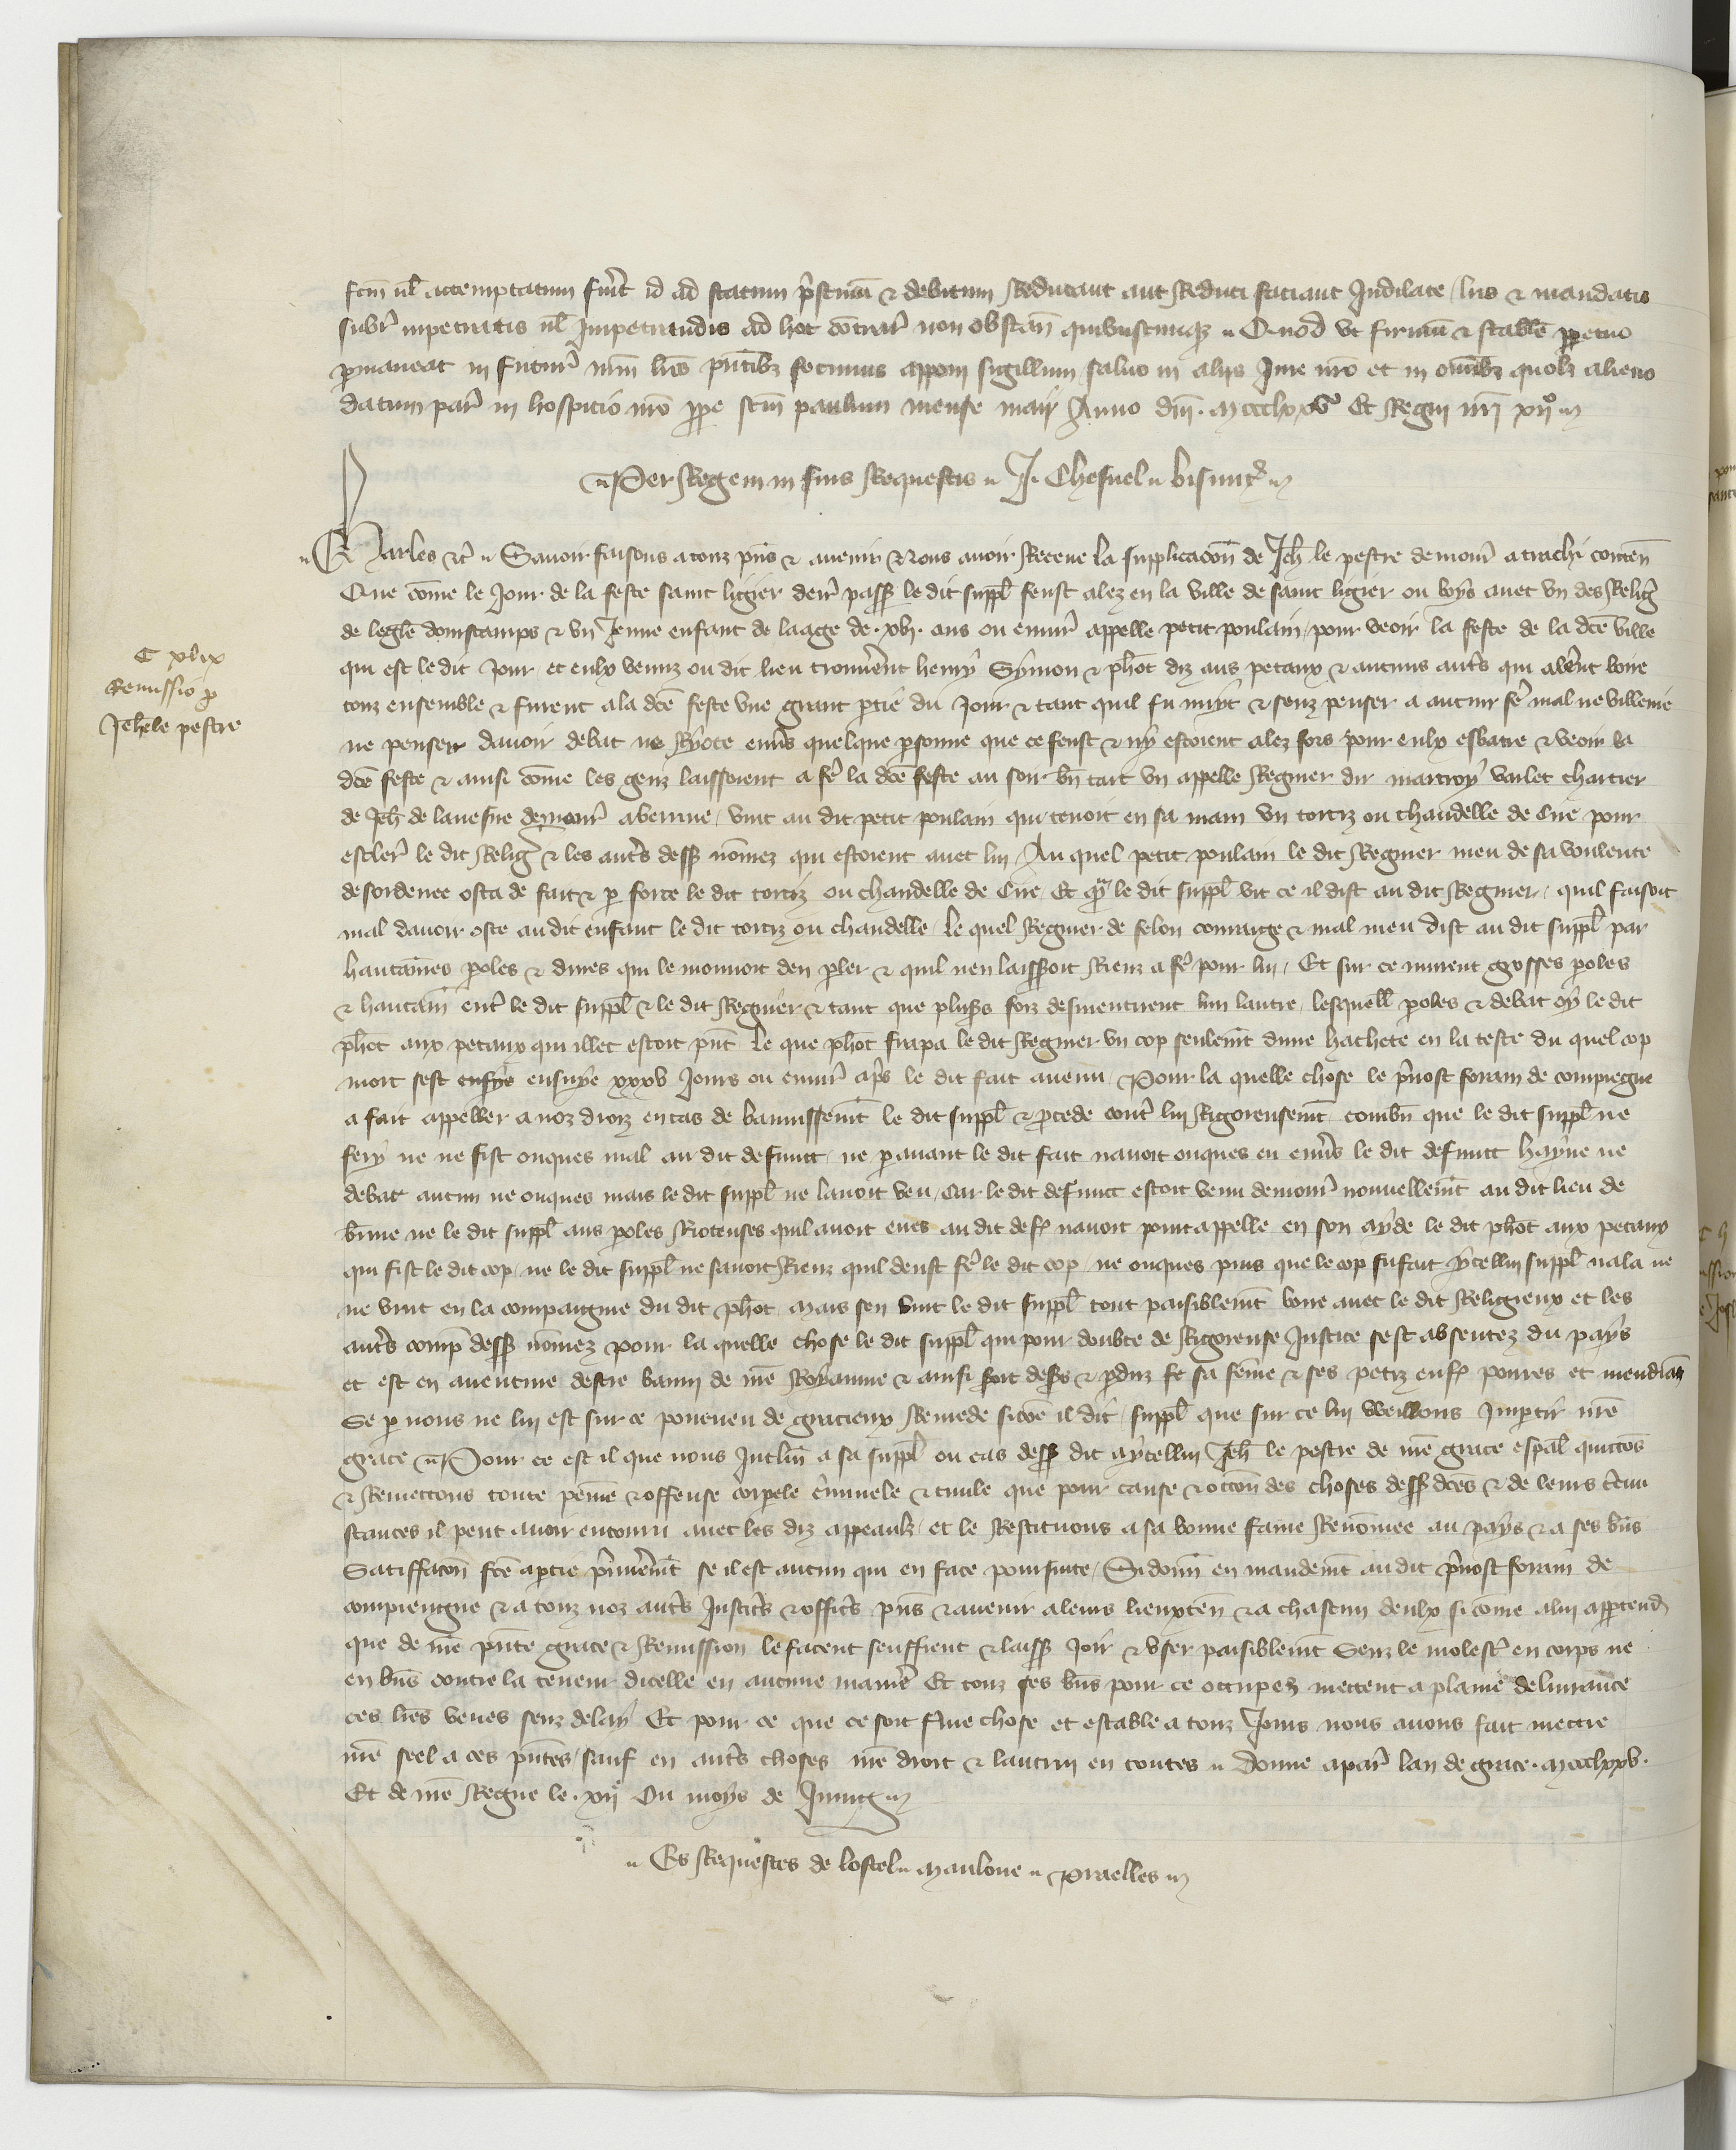 fcm ul attemptatum fuerit id ad statum pristinum & debitum Reducant aut Reduci faciant Indilate / lris & mandatis
subr inpetratis ul Impetrandis ad hoc contrar non obstan quibuscunqz Quod ut firmu & stabile perpetuo
pmaneat in futur nrm lres pntibz fecimus apponi sigillum saluo in aliis Iure nro et in omibz quolz alieno
datum par in hospicio nro ppe scm paulum mense maii Anno dni . mccclxxv Et Regni nri xii
Per Regem in suis Requestis J. Chesnel bisunt
Charles &c Sauoir faisons a touz pns & auenir Nous auoir Receue la supplicacon de Jeh le pestre demour a trachi conten
Que come le Jour de la feste saint ligier derr passe le dit suppl feust alez en la ville de saint ligier ou boys auec vn des Relig
de leglise doinstamps & vn Jenne enfant de laage de . xv . ans ou enuir appelle petit poulain / pour veoir la feste de la dce ville
qui est le dit Jour et eulx venuz ou dit lieu trouuerent henry Symon & phot diz aus petaux & aucuns autrs qui alerent boire
touz ensemble & furent a la dce feste vne grant ptie du Jour & tant quil fu nuyt & senz penser a aucun fe mal ne villenie
ne penser dauoir debat ne Ryote enuers quelque psonne que ce feust & ny estoient alez fors pour eulx esbatre & veoir la
dce feste & ainsi come les genz laissoient a fe la dce feste au soir bn tart vn appelle Regnier du martroy varlet chartier
de Jeh de lauesne demour a berine / vint au dit petit poulain qui tenoit en sa main vn tortiz ou chandelle de Cire pour
escler le dit Relig & les autrs dess nomez qui estoient auec lui / Au quel petit poulain le dit Regnier meu de sa voulente
desordenee osta de fait & p force le dit tortiz ou chandelle de Cire Et qnt le dit suppl vit ce il dist au dit Regnier / quil faisoit
mal dauoir oste au dit enfant le dit tortiz ou chandelle / le quel Regnier de felon courage & mal meu dist au dit suppl par
hautaines poles & dures qui le mouuoit den pler & quil nen laissoit Rienz a fe pour lui / Et sur ce murent grosses poles
& hautain entr le dit suppl & le dit Regnier & tant que pluss foiz desmentirent lun lautre / lesquell poles & debat oy le dit
phot aux petaux qui illec estoit pnt le que phot frapa le dit Regnier vn cop seulemt dune hachete en la teste du quel cop
mort sest ensuye xxxv Jours ou enuir apres le dit fait auenu / Pour la quelle chose le pruost forain de compiegne
a fait appeller a noz droiz en cas de bannissemt le dit suppl & pcede contr lui Rigoreusemt combn que le dit suppl ne
fery ne ne fist onques mal au dit defunct / ne pauant le dit fait nauoit onques eu enuers le dit defunct hayne ne
debat aucun ne onques mais le dit suppl ne lauoit veu / Car le dit defunct estoit venu demour nouuellemt au dit lieu de
brine ne le dit suppl aus poles Rioteuses quil auoit eues au dit def nauoit point appelle en son ayde le dit phot aux petaux
qui fist le dit cop / ne le dit suppl ne sauoit Rienz quil deust fe le dit cop / ne onques puis que le cop fu fait ycellui suppl nala ne
ne vint en la compaignie du dit phot mais sen vint le dit suppl tout paisiblemt boire auec le dit Religieux et les
autrs comp dess nomez pour la quelle chose le dit suppl qui pour doubte de Rigoreuse Justice sest absentez du pays
et est en auenture destre banni de nre Royaume & ainsi soit desers & pduz se sa feme & ses petiz enf poures et mendians
Se p nous ne lui est sur ce pourueu de gracieux Remede sicoe il dit / suppl que sur ce lui vueillons Impartir nre
grace Pour ce est il que nous Inclin a sa suppl ou cas dess dit a ycellui Jeh le pestre de nre grace espal quittons
& Remettons toute peine & offense corpele criminele & ciuile que pour cause & occon des choses dess dces & de leurs circun
stances il peut auoir encouru auec les diz appeaulz / et le Restituons a sa bonne fame Renomee au pays & a ses bns
Satisfacon fce a ptie premierement se il est aucun qui en face poursuite / Si donn en mandemt au dit pruost forain de
compiengne & a touz noz autrs Justicrs & officrs pns & auenir a leurs lieuxten & a chascun deulx sicome a lui appartend
que de nre pnte grace & Remission le facent seuffrent & laiss Joir & vser paisiblemt Senz le molestr en corps ne
en bns contre la teneur dicelle en aucune maniere Et touz ses bns pour ce occupez mettent a plaine deliurance
ces lres veues senz delay Et pour ce que ce soit ferme chose et estable a touz Jours nous auons fait mettre
nre seel a ces pntes / sauf en autrs choses nre droit & lautruy en toutes donne a par lan de grace . mccclxxv .
Et de nre Regne le . xii Ou moys de Juing
Es Requestes de lostel Mauloue Praelles
C xlix
Remissio p
Jehe le pestre